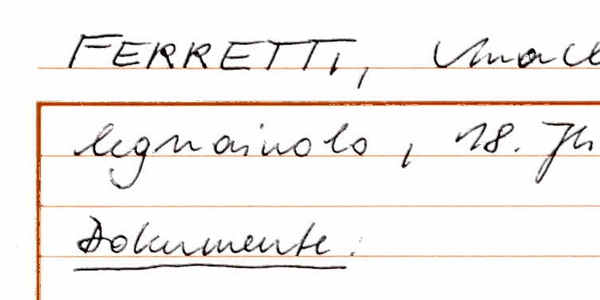 FERRETTI,
legnaiuolo, 18. Jh
Dokumente.